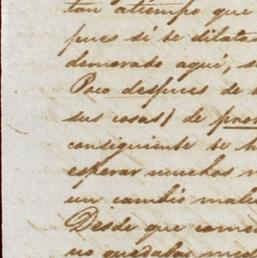 tan atiempo que
pues si se dilata
demorado aquí, s
Poco despues de
sus cosas) de pron
consiguiente te h
esperar muchos
un cambio mate
Desde que come
no quedaba med